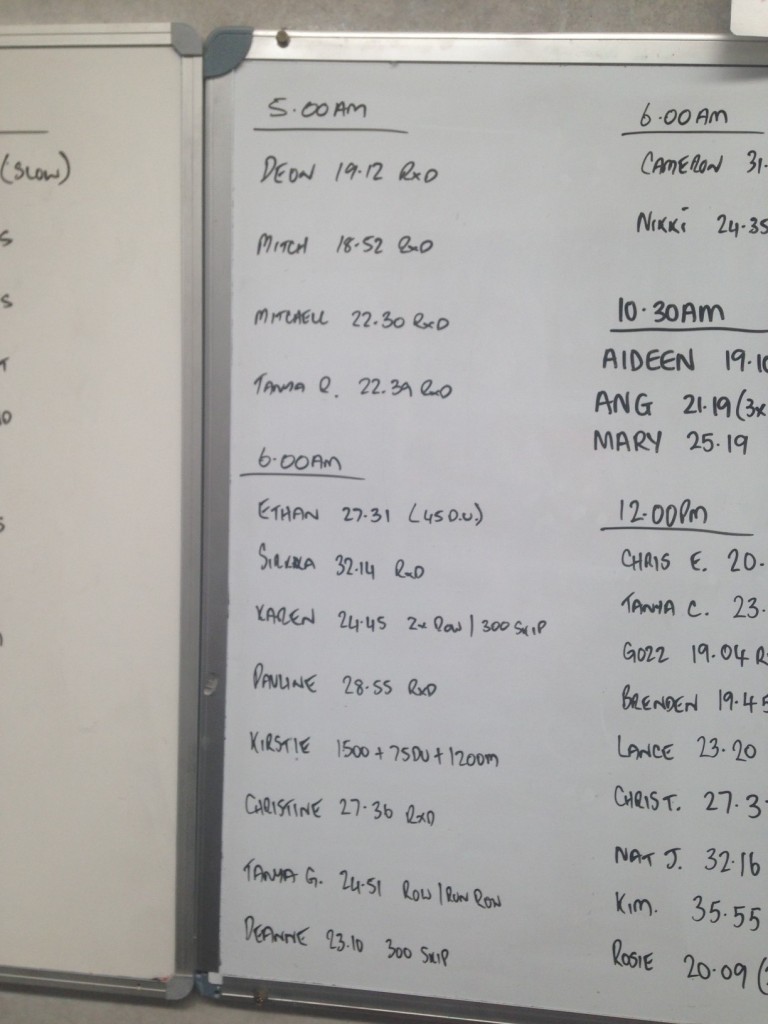 (SLOW)
5.00AM
DEON 19.12 RxD
MITCH 18.52 RxD
MITCHELL 22.30 RxD
TANYA R. 22.39 RxD
6.00AM
ETHAN 27.31 (45 D.U)
32.14 RxD
KAREN 24.45 2x ROW / 300 SKIP
PAULINE 28.55 RxD
KIRSTIE 1500 + 75DU + 1200m
CHRISTINE 27.36 RxD
TANYA G. 24.51 ROW / RUN ROW
DEANNE 23.10 300 SKIP
6.00AM
CAMERON 31.
NIKKi 24.35
10.30AM
AIDEEN 19.10
ANG 21.19 (3x
MARY 25.19
12.00Pm
CHRIS E. 20.
TANYA C. 23.
GOZZ 19.04 R
BRENDEN 19.45
LANCE 23.20
CHRIS T. 27.3
NAT J. 32.16
KIM. 35.55
ROSIE 20.09 (